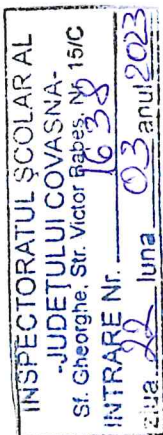 INSPECTORATUL ȘCOLAR AL
-JUDEȚULUI COVASNA-
Sf. Gheorghe, Str. Victor Babes, Nr. 15/C
INTRARE Nr. 1638
ziua 22 luna 03 anul 2023